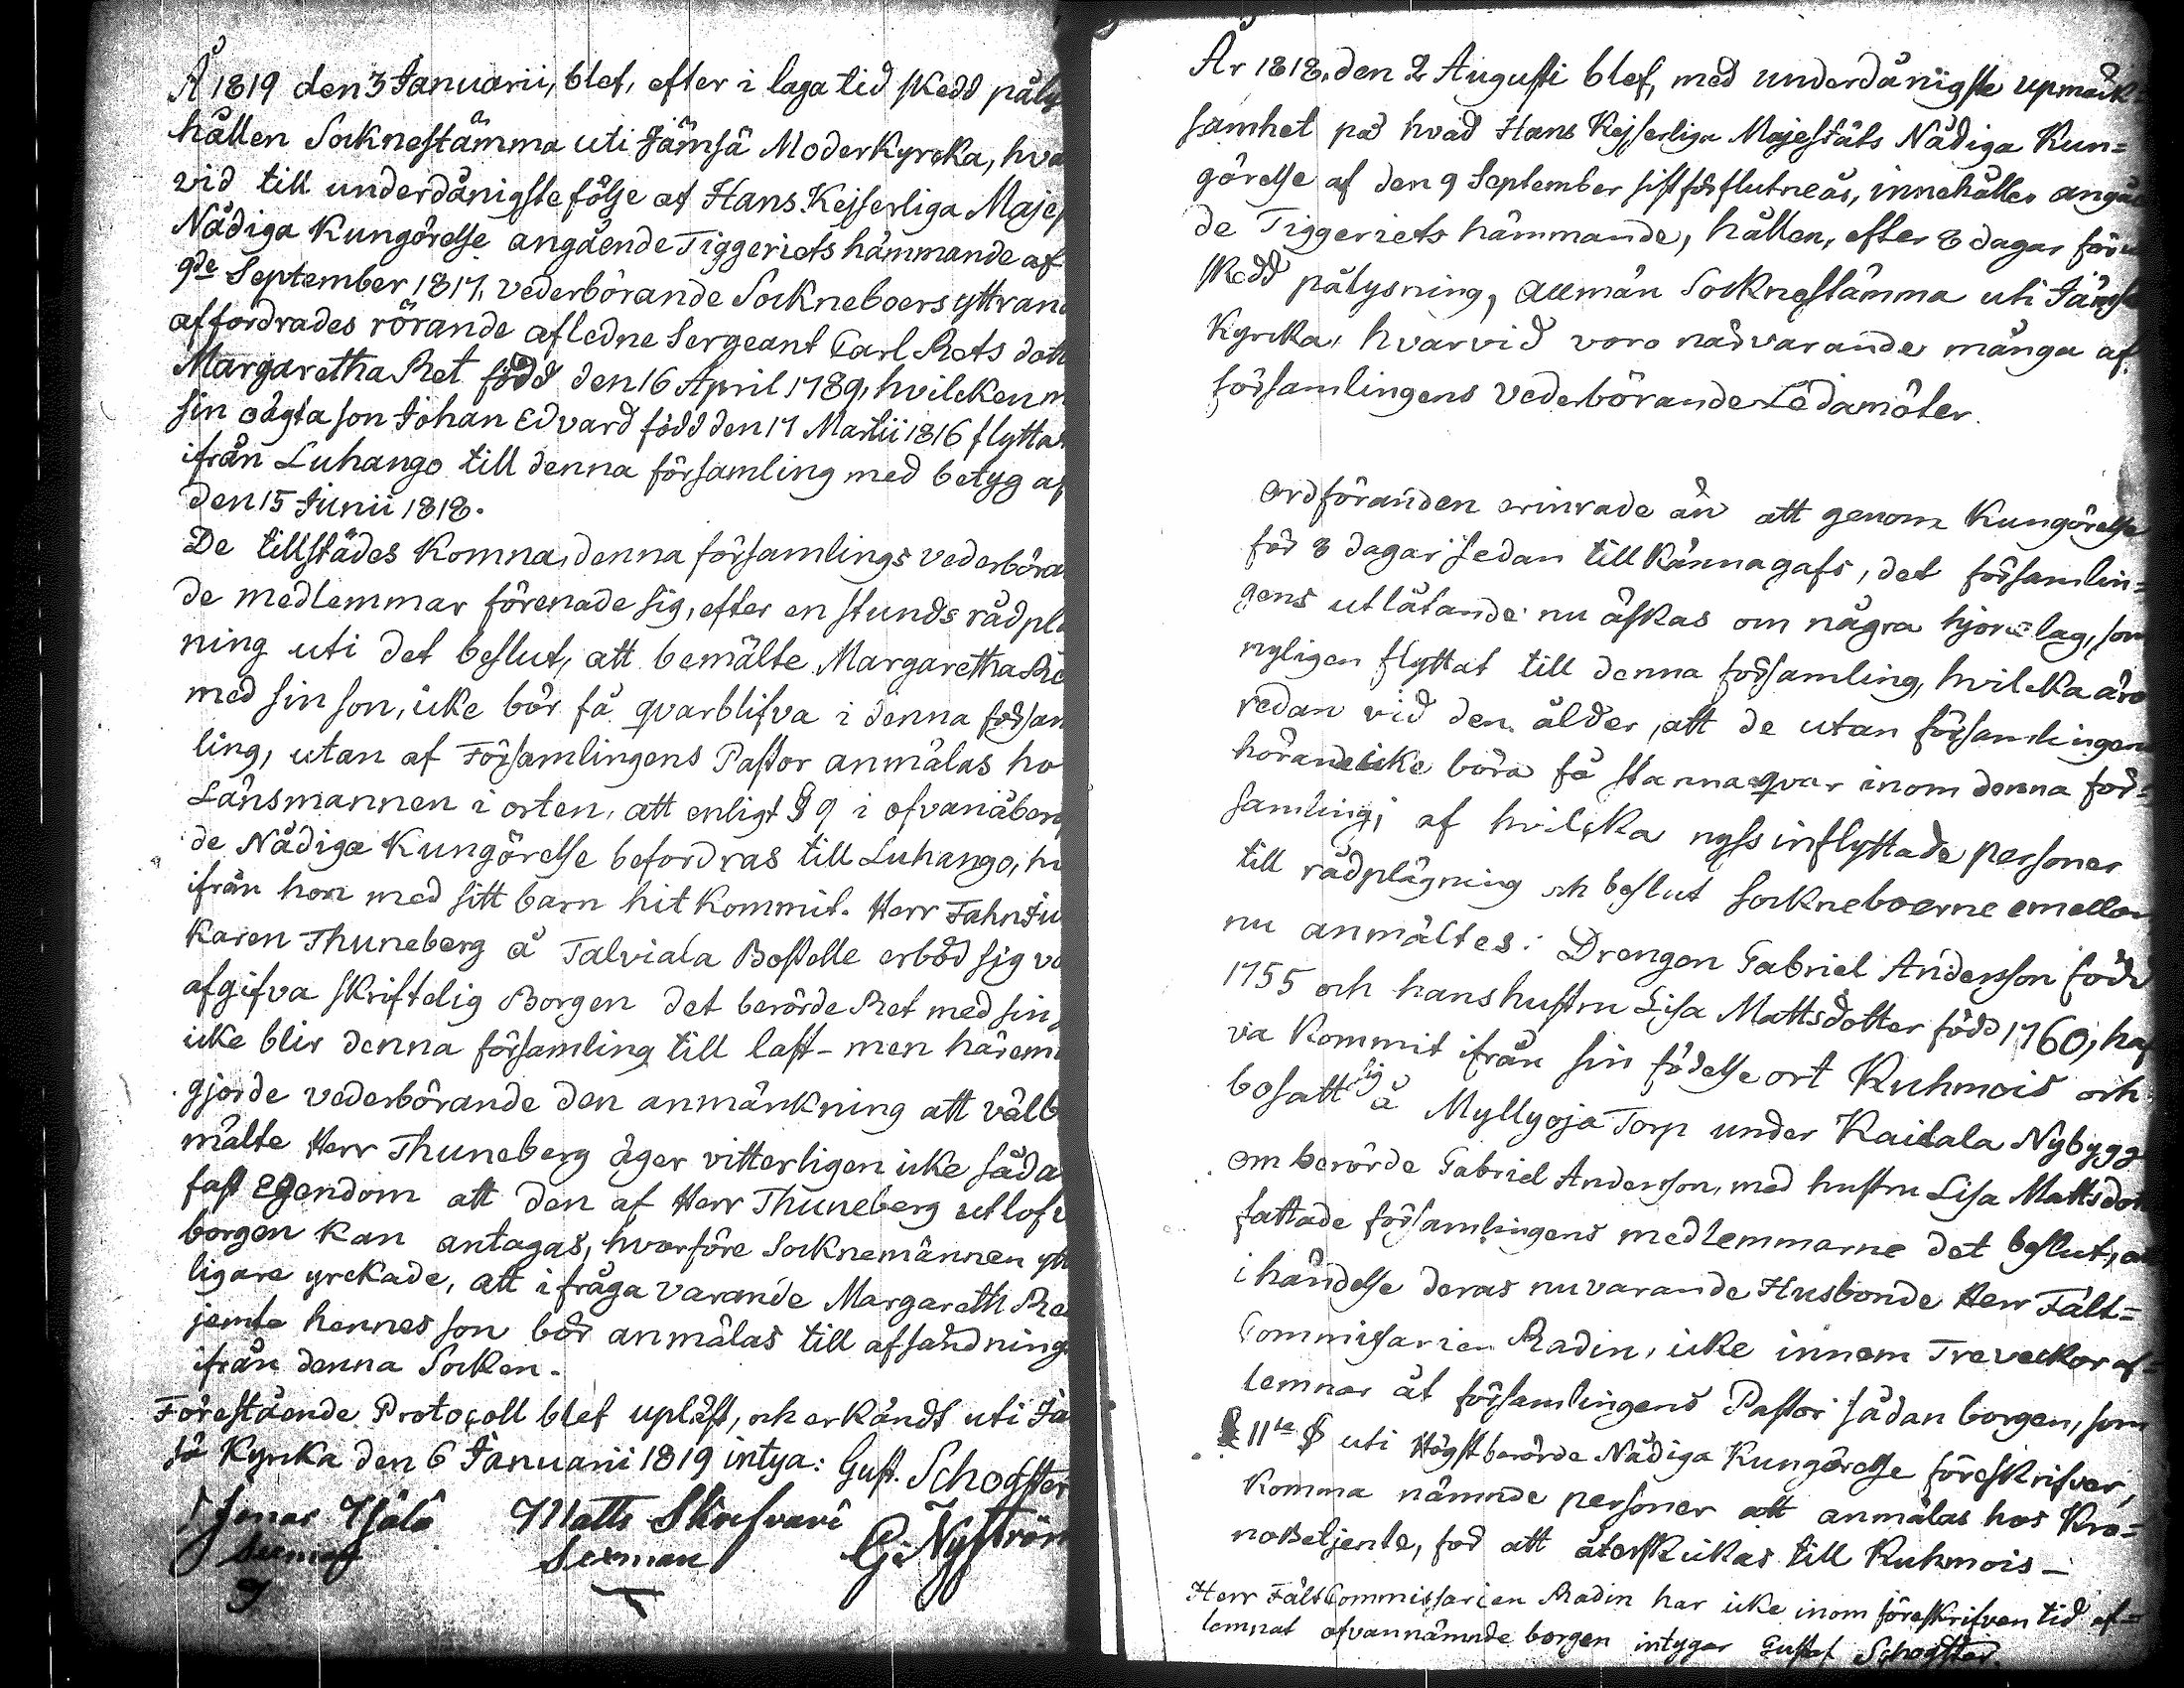 År 1819 den 3 Januarii, blef, efter i laga tid skedd påly
hållen Socknestämma uti Jämsä Moderkyrcka, hva
vid till underdånigste följe af Hans Kejserliga Majes
Nådiga Kungörelse angående Tiggeriets hämmande af
9de September 1817, vederbörande Sockneboers yttrand
affordrades rörande afledne Sergeant Carl Rets dott
Margaretha Ret född den 16 April 1789, hvilcken m
sin oägta son Johan Edvard född den 17 Martii 1816 flyttat
ifrån Luhango till denna församling med betyg af
den 15 Junii 1818.
De tillstädes komna, denna församlings vederböra
de medlemmar förenade sig, efter en stunds rådplä
ning uti det beslut, att bemälte Margaretha Re
med sin son, icke bör få qvarblifva i denna försam
ling, utan af Församlingens Pastor anmälas ho
Länsmannen i orten, att enligt § 9 i ofvanåberop
de Nådiga Kungörelse befordras till Luhango, hv
ifrån hon med sitt barn hitkommit. Herr Fahnju
karen Thuneberg å Talviala Boställe erböd sig va
afgifva skriftelig Borgen det berörde Ret med sin
icke blir denna församling till last - men härem
gjorde vederbörande den anmärkning att välb
mälte Herr Thuneberg äger vitterligen icke såda
fast egendom att den af Herr Thuneberg utlofv
borgen kan antagas, hvarföre Socknemännen ytt
ligare yrckade, att ifråga varande Margareth Re
jemte hennes son bör anmälas till afsändning
ifrån denna Socken.
Förestående Protocoll blef uplåst, och erkändt uti Jä
sä Kyrcka den 6 Januarii 1819 intya: Gust. Schogster
Jonas Matts Skrifvari G. Nyström
Sexman Sexman
År 1818, den 2 Augusti blef, med underdånigste upmärk-
samhet på hvad Hans Kejserliga Majestäts Nådiga Kun=
görelse af den 9 September sistförflutne år, innehåller angåe
de Tiggeriets hämmande, hållen, efter 8 dagar föru
skedd pålysning, allmän Socknestämma uti Jämsä
Kyrcka, hvarvid voro närvarande många af
församlingens Vederbörande Ledamöter.
Ordföranden erinrade än att genom Kungörelse
för 8 dagar sedan tillkännagafs, det församlin=
gens utlåtande nu äskas om några hjonelag, som
nyligen flyttat till denna församling, hvilcka äro
redan vid den ålder, att de utan församlingens
hörande icke böra få stanna qvar inom denna för=
samling; af hvilcka nyss inflyttade personer
till rådplägning och beslut Sockneboerne emellan
nu anmältes: Drengen Gabriel Andersson född
1755 och hans hustru Lisa Mattsdotter född 1760, haf
va kommit ifrån sin födelseort Kuhmois och
bosatt sig å Myllyoja Torp under Kaidala Nybygge
Om berörde Gabriel Andersson, med hustru Lisa Mattsdott
fattade församlingens medlemmarne det beslut, at
i händelse deras nuvarande Husbonde Herr Fält=
Commissarien Radin, icke innom Tre veckor af=
lemnar åt församlingens Pastor sådan borgen, som
11te § uti Högstberörde Nådiga Kungörelse föreskrifver,
komma nämnde personer att anmälas hos Kro=
nobetjente, för att återskickas till Kuhmois -
Herr Fält Commissarien Radin har icke inom föreskrifven tid af=
lemnat ofvannämnde borgen intygar Gustaf Schogster.